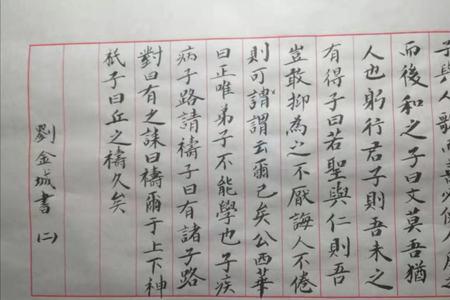 子與人歌而善必使人反之
而後和之子曰文莫吾猶
人也躬行君子則吾未之
有得子曰若聖與仁則吾
豈敢抑為之不厭誨人不倦
則可謂謂云爾已矣公西華
曰正唯弟子不能學也子疾
病子路請禱子曰有諸子路
對曰有之誄曰禱爾于上下神
祇子曰丘之禱久矣
劉金城書(二)